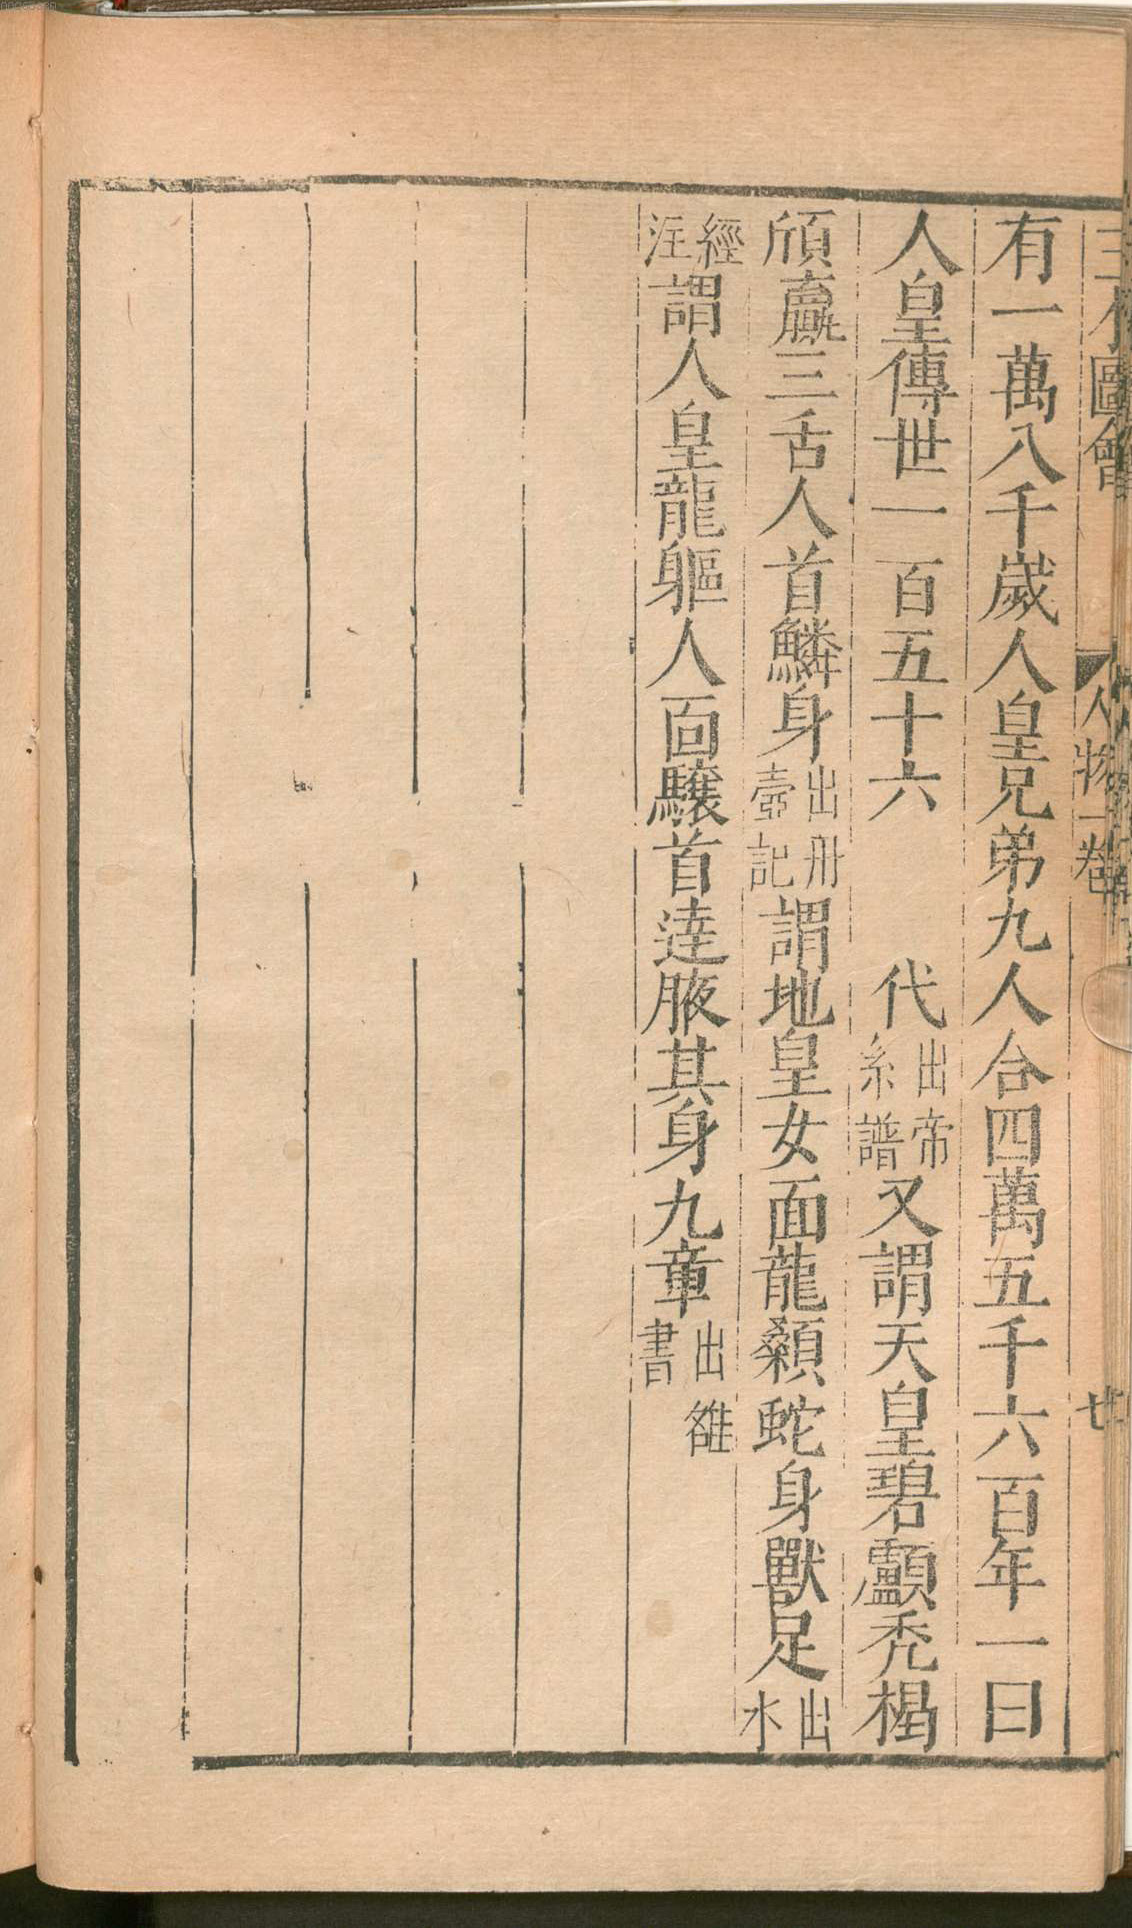 三才圖會 人物一卷 廿
有一萬八千歲人皇兄弟九人合四萬五千六百年一曰
人皇傳世一百五十六 代出帝系譜又謂天皇碧顱禿楬
頎贏三舌人首鱗身出丹壺記謂地皇女面龍顙蛇身獸足出水
經注謂人皇龍軀人面驤首達腋其身九章出雒書